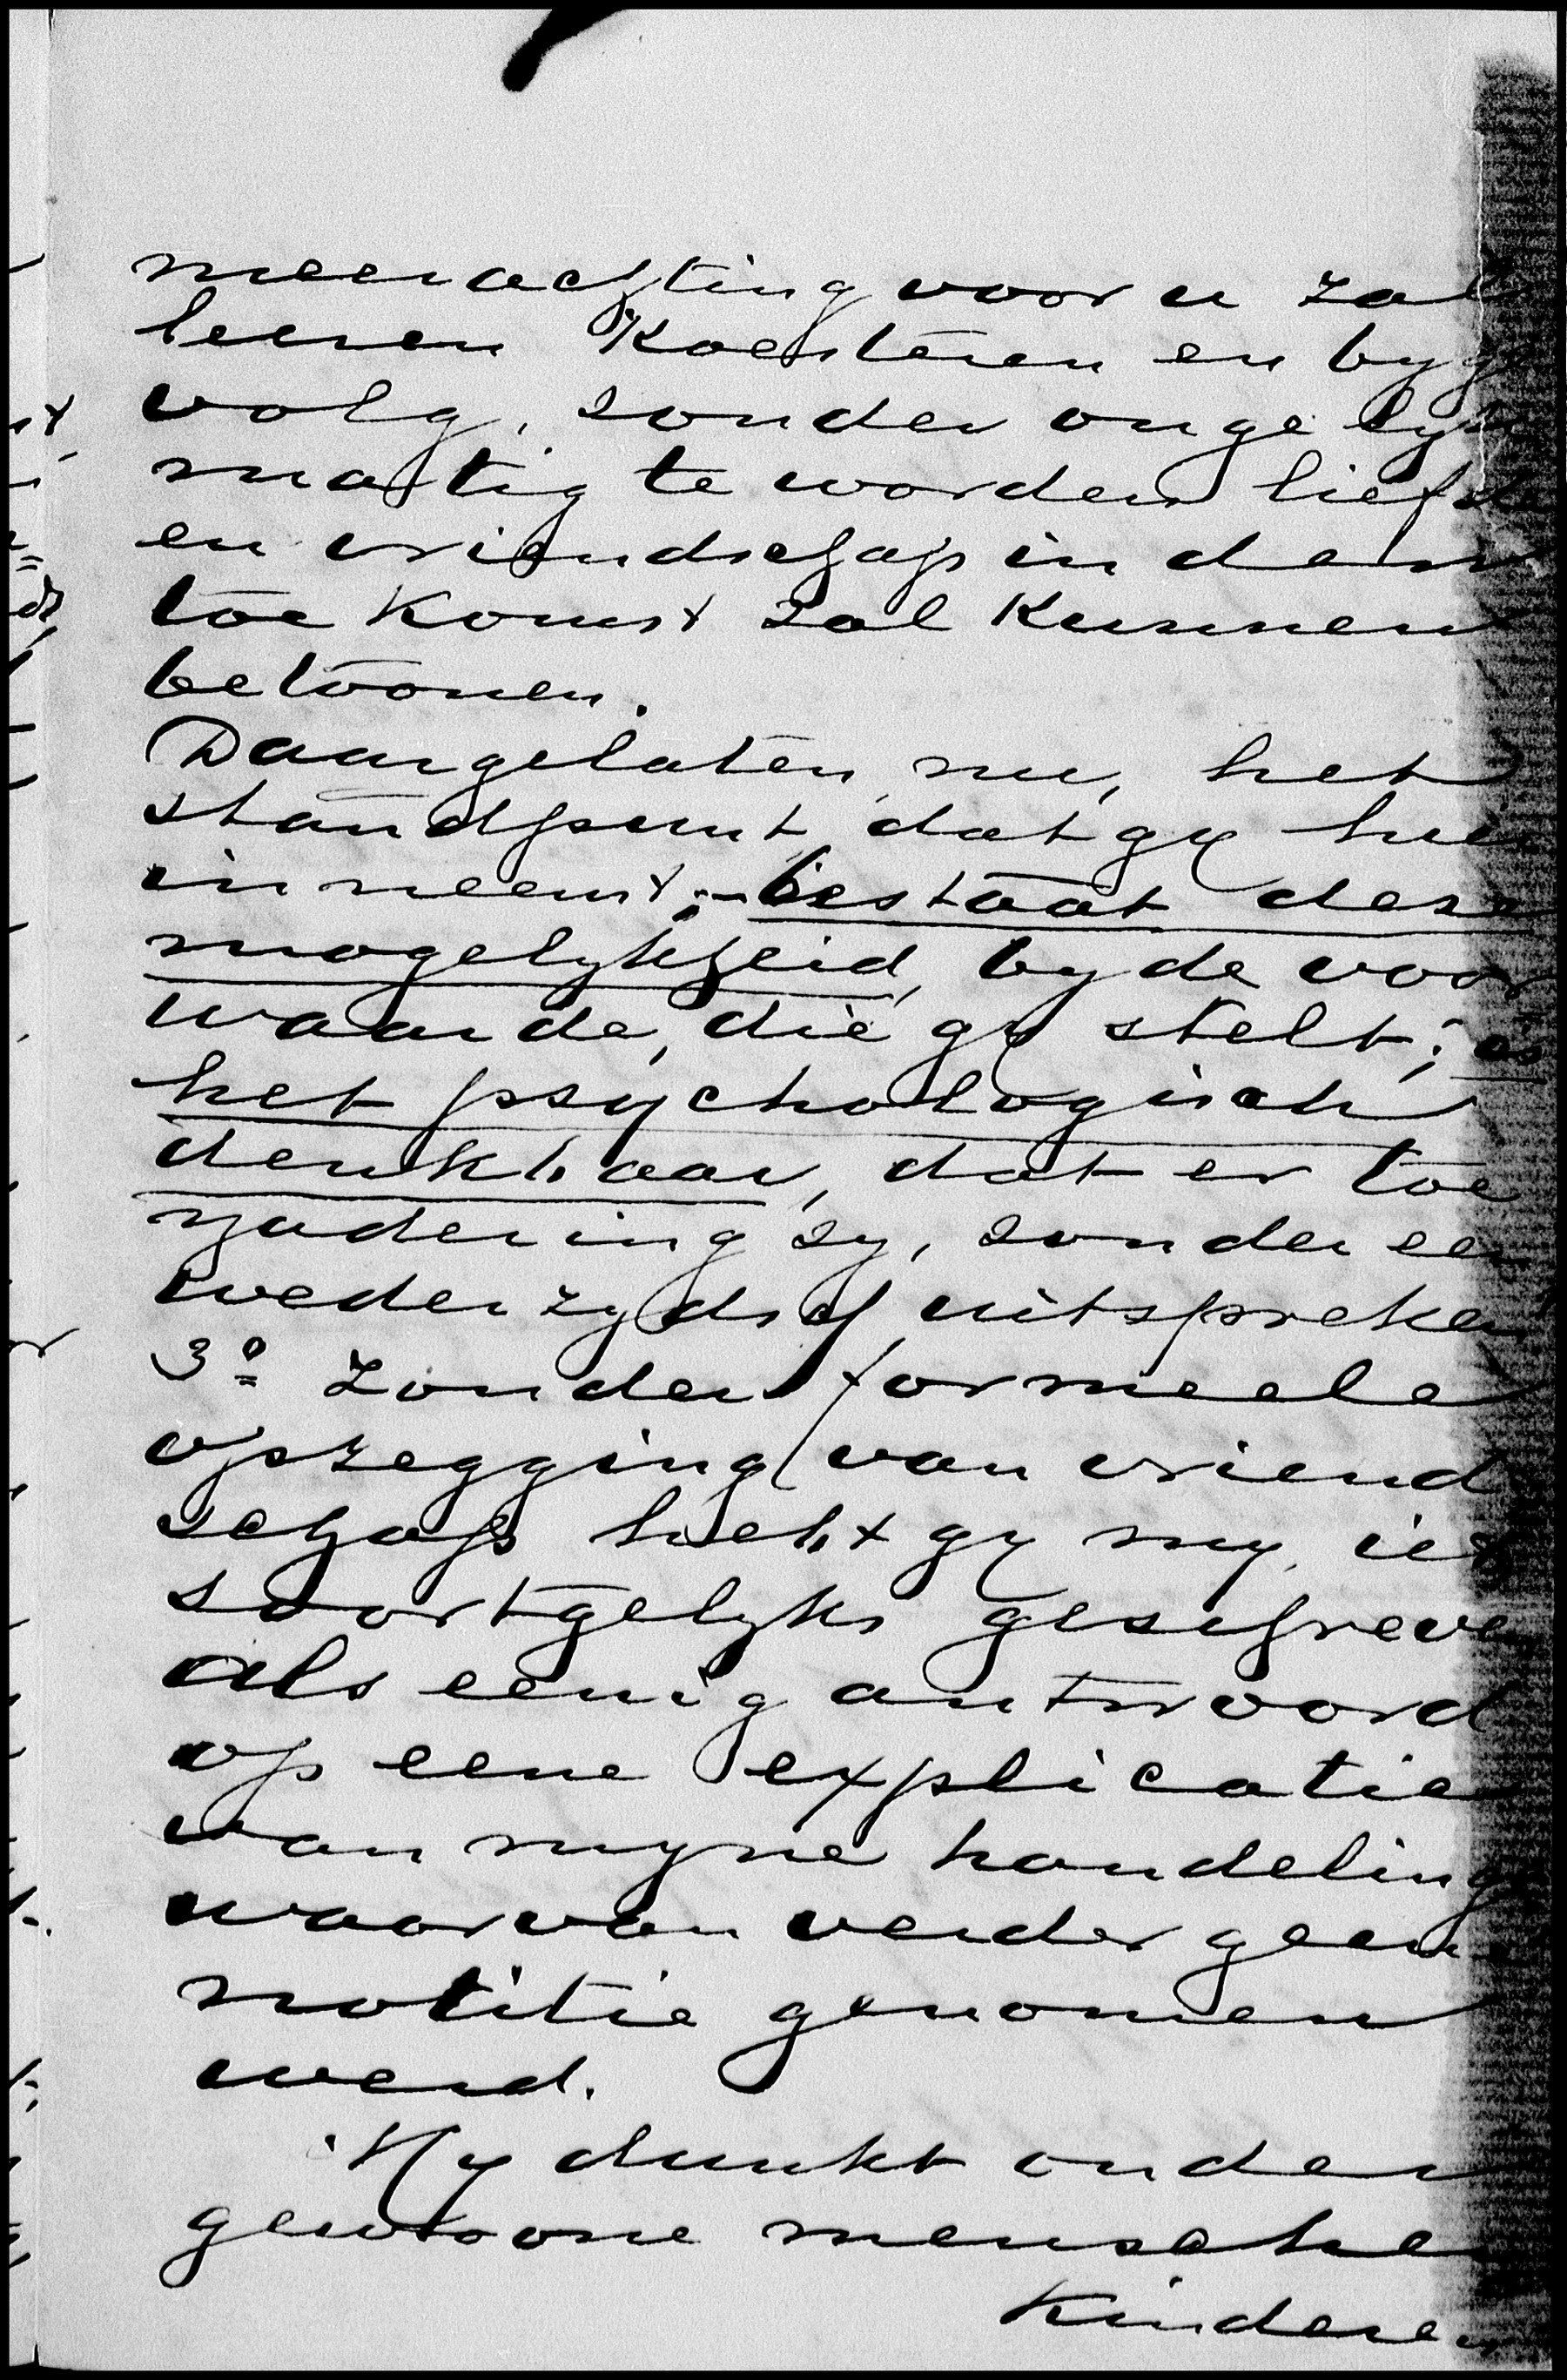 meer achting voor u zal
leeren koesteren en byge
volg, zonder ongelyk
matig te worden liefde
en vriendschap in den
toekomst zal kunnen
betoonen.
Daargelaten, nu, het
standpunt, dat gy hier
inneemt; – bestaat deze
mogelykheid, by de voor
waarde, die gy stelt; is
het psychologisch
denkbaar, dat er toe
nadering zy, zonder een
wederzydsch uitspreken
3º Zonder formeele
opzegging van vriend
schap hebt gy my iets
soortgelyks geschreven
als eenig antwoord
op eene explicatie
van myne handeling
waarvan verder geene
notitie genomen
werd.
My dunkt onder
gewoone menschen
kinderen